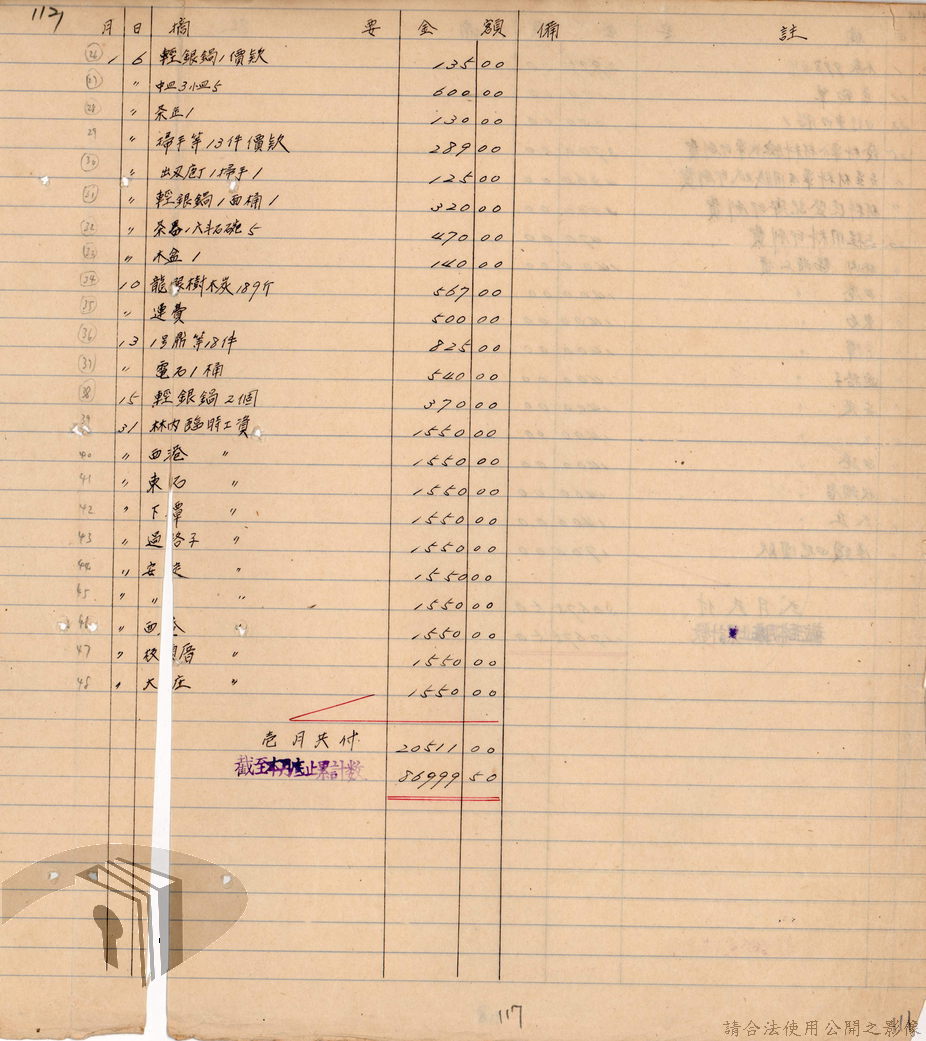 112
月 日 摘 要 金 額 備 註
(26) 1 6 輕銀鍋1價款 135 00
(27) 〃 中皿3小皿5 600 00
(28) 〃 茶缶1 130 00
29 〃 掃手等13件價款 289 00
(30) 〃 出刃庖丁1掃手1 125 00
(31) 〃 輕銀鍋1西桶1 320 00
(32) 〃 5 470 00
(33) 〃 木盆1 140 00
(34) 10 龍眼樹木炭189斤 567 00
(35) 〃 運費 500 00
(36) 13 1号鼎等18件 825 00
(37) 〃 電石1桶 540 00
(38) 15 輕銀鍋2個 370 00
39 31 林內臨時工資 1550 00
40 〃 西港 〃 1550 00
41 〃 東石 〃 1550 00
42 〃 下潭 〃 1550 00
43 〃 過路子 〃 1550 00
44 〃 安定 〃 1550 00
45 〃 〃 〃 1550 00
46 〃 西 〃 1550 00
47 〃 厝 〃 1550 00
48 〃 大庄 〃 1550 00
壱月共付 20511 00
截至本月底止累計數 86999 50
117
116
請合法使用公開之影像